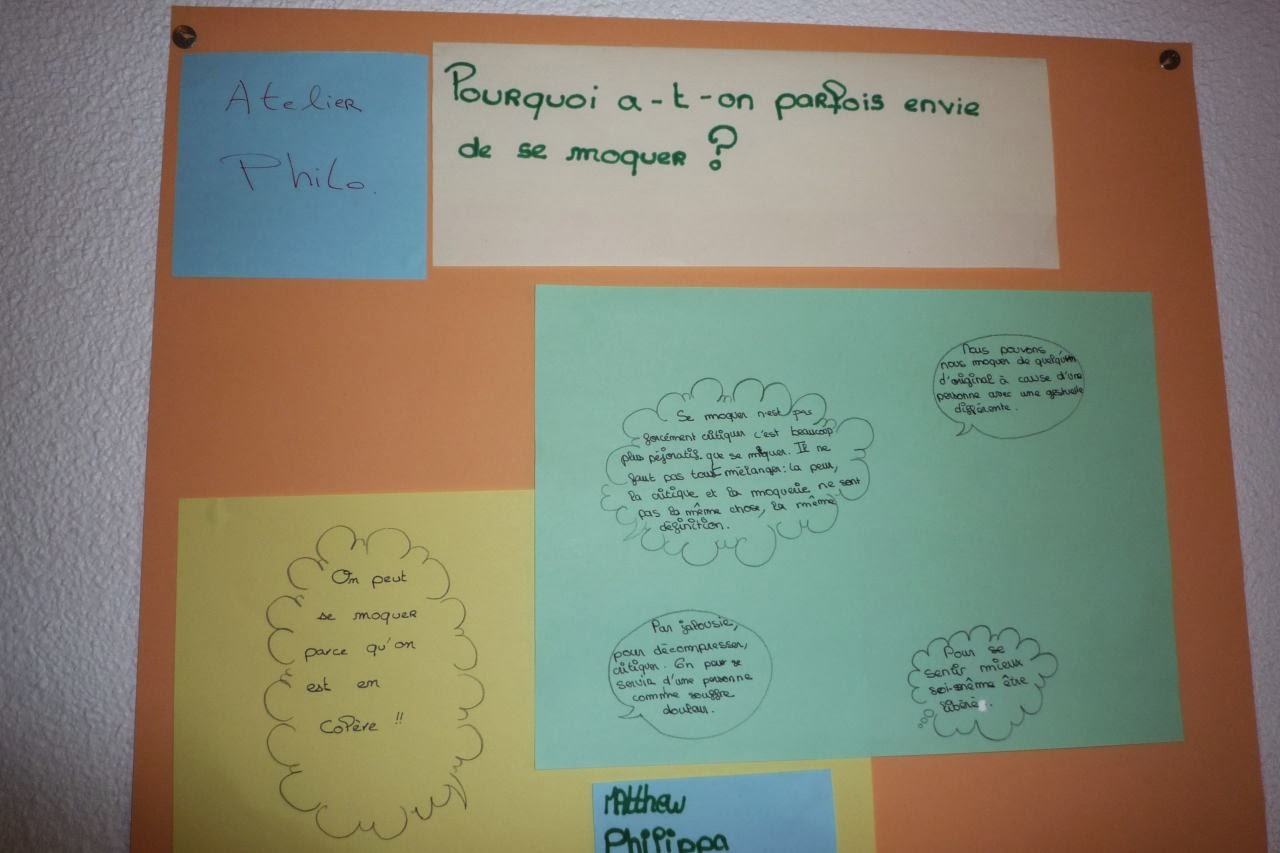 Atelier
Philo.
Pourquoi a-t-on parfois envie
de se moquer ?
Nous pouvons
nous moquer de quelqu'un
d'original à cause d'une
personne avec une gestuelle
différente.
Se moquer n'est pas
forcément critiquer c'est beaucoup
plus péjoratif que se moquer. Il ne
faut pas tout mélanger: la peur,
la critique et la moquerie ne sont
pas la même chose, la même
définition.
On peut
se moquer
parce qu'on
est en
colère !!
Par jalousie,
pour décompresser,
critiquer. En pour se
servir d'une personne
comme souffre
douleur.
Pour se
sentir mieux
soi-même être
libéré.
Matthew
Philippa